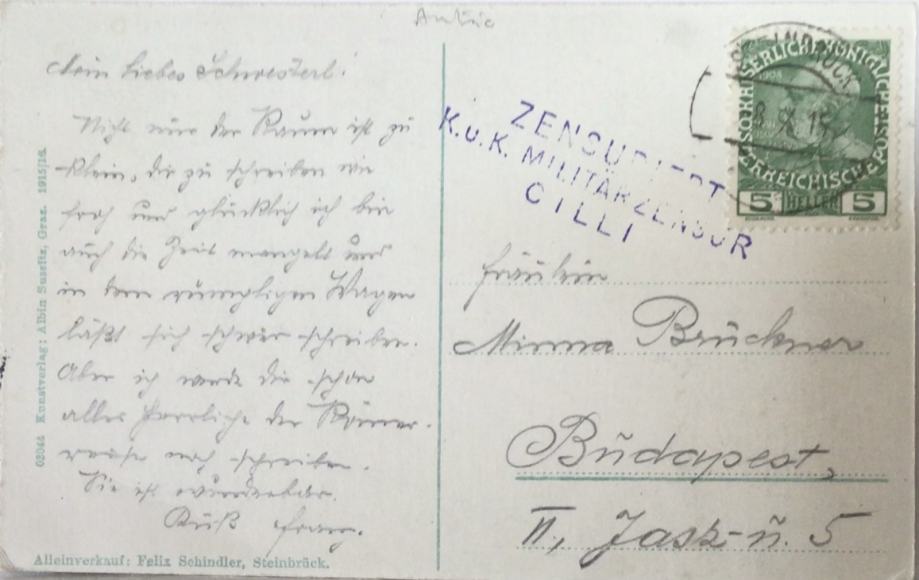 Mein liebes Schwesterl!
Nicht nur der Raum ist zu
klein, dir zu schreiben wie
froh und glücklich ich bin
auch die Zeit mangelt und
in dem rumpligen Wagen
läßt sich schwer schreiben.
Aber ich werde dir schon
alles Herrliche der Römer-
reise noch schreiben.
Sie ist wunderbar.
Kuß
02044 Kunstverlag: Albin Sussitz, Graz. 1915/16.
Alleinverkauf: Felix Schindler, Steinbrück.
ZENSURIERT
K.u.K. MILITÄRZENSUR
CILLI
STEINBRÜCK
8 X 15
KAISERLICHE KÖNIGLICHE ÖSTERREICHISCHE POST
5 HELLER 5
Fräulein
Minna Brückner
Budapest,
II, Jask-ú. 5